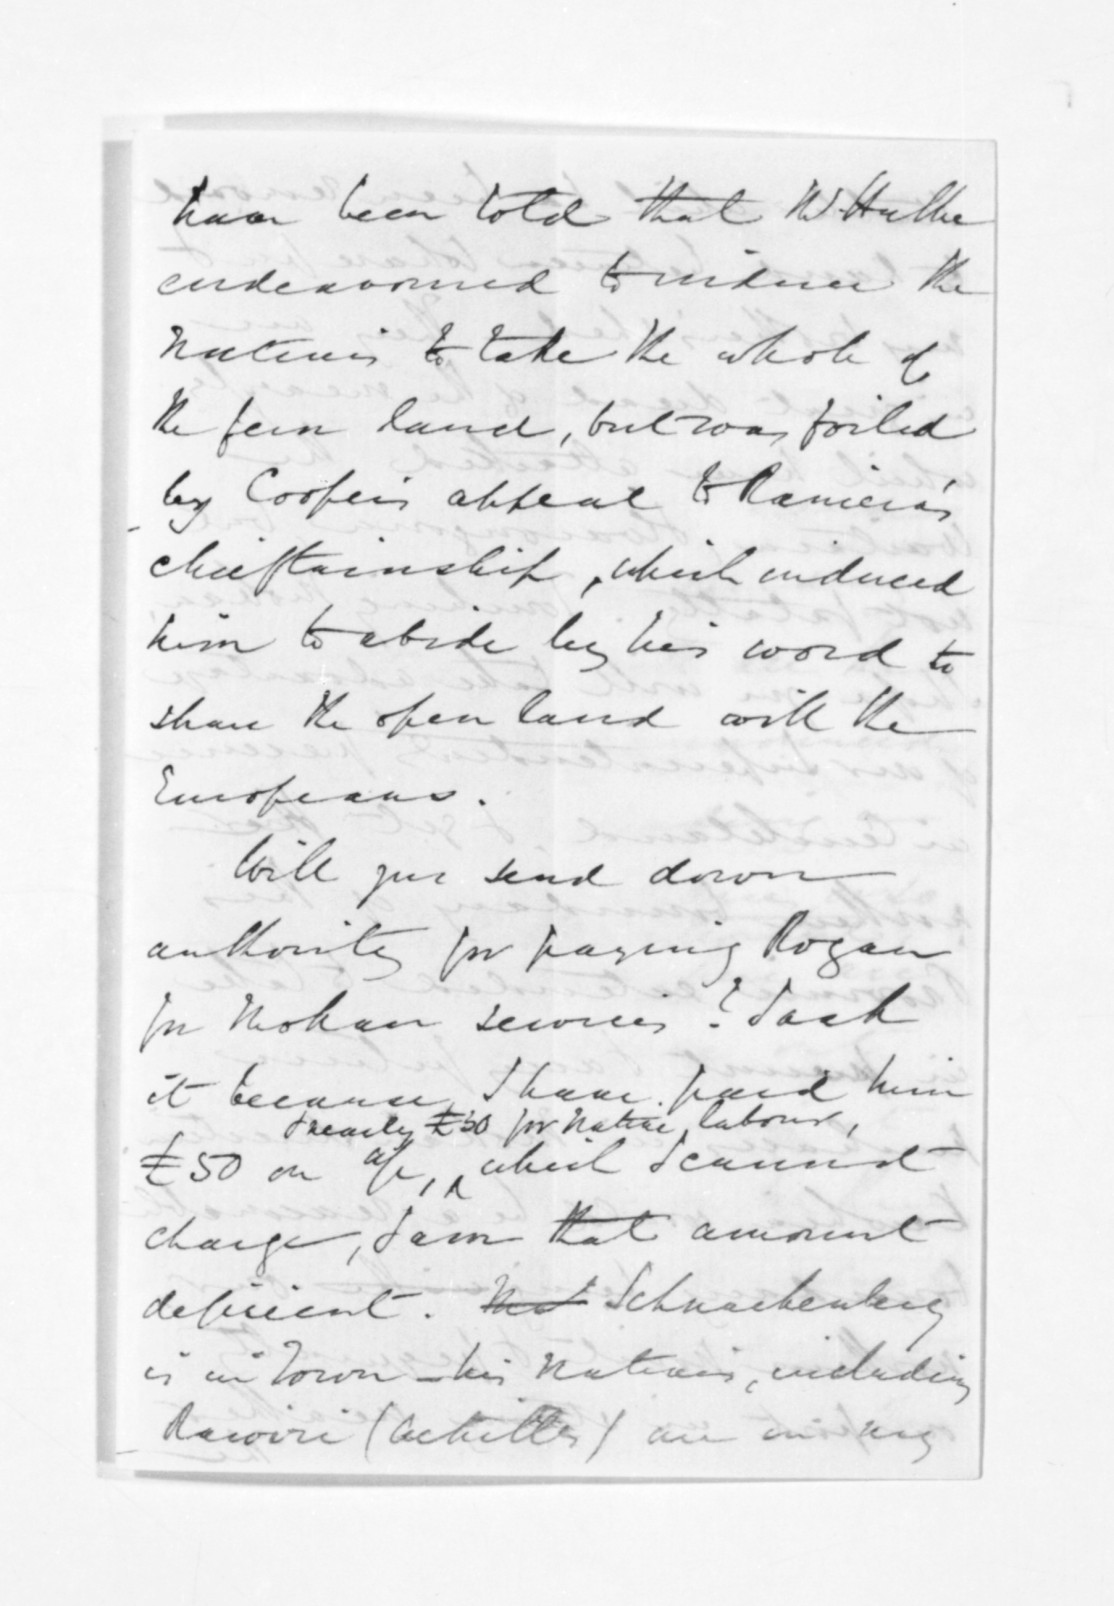 have been told that Mr Hulke
endeavoured to induce the
Natives to take the whole of
the fern land, but was foiled
by Cooper's appeal to Raniera's
chieftainship, which induced
him to abide by his word to
share the open land with the
Europeans.
Will you send down
authority for paying Rogan
for Mokau services? I ask
it because I have paid him
& nearly £50 for native labour,
£50 on a/c, which I cannot
charge, I am that amount
deficient. Schnackenberg
is in Town – his Natives, including
Rawiri (Achilles) are in my